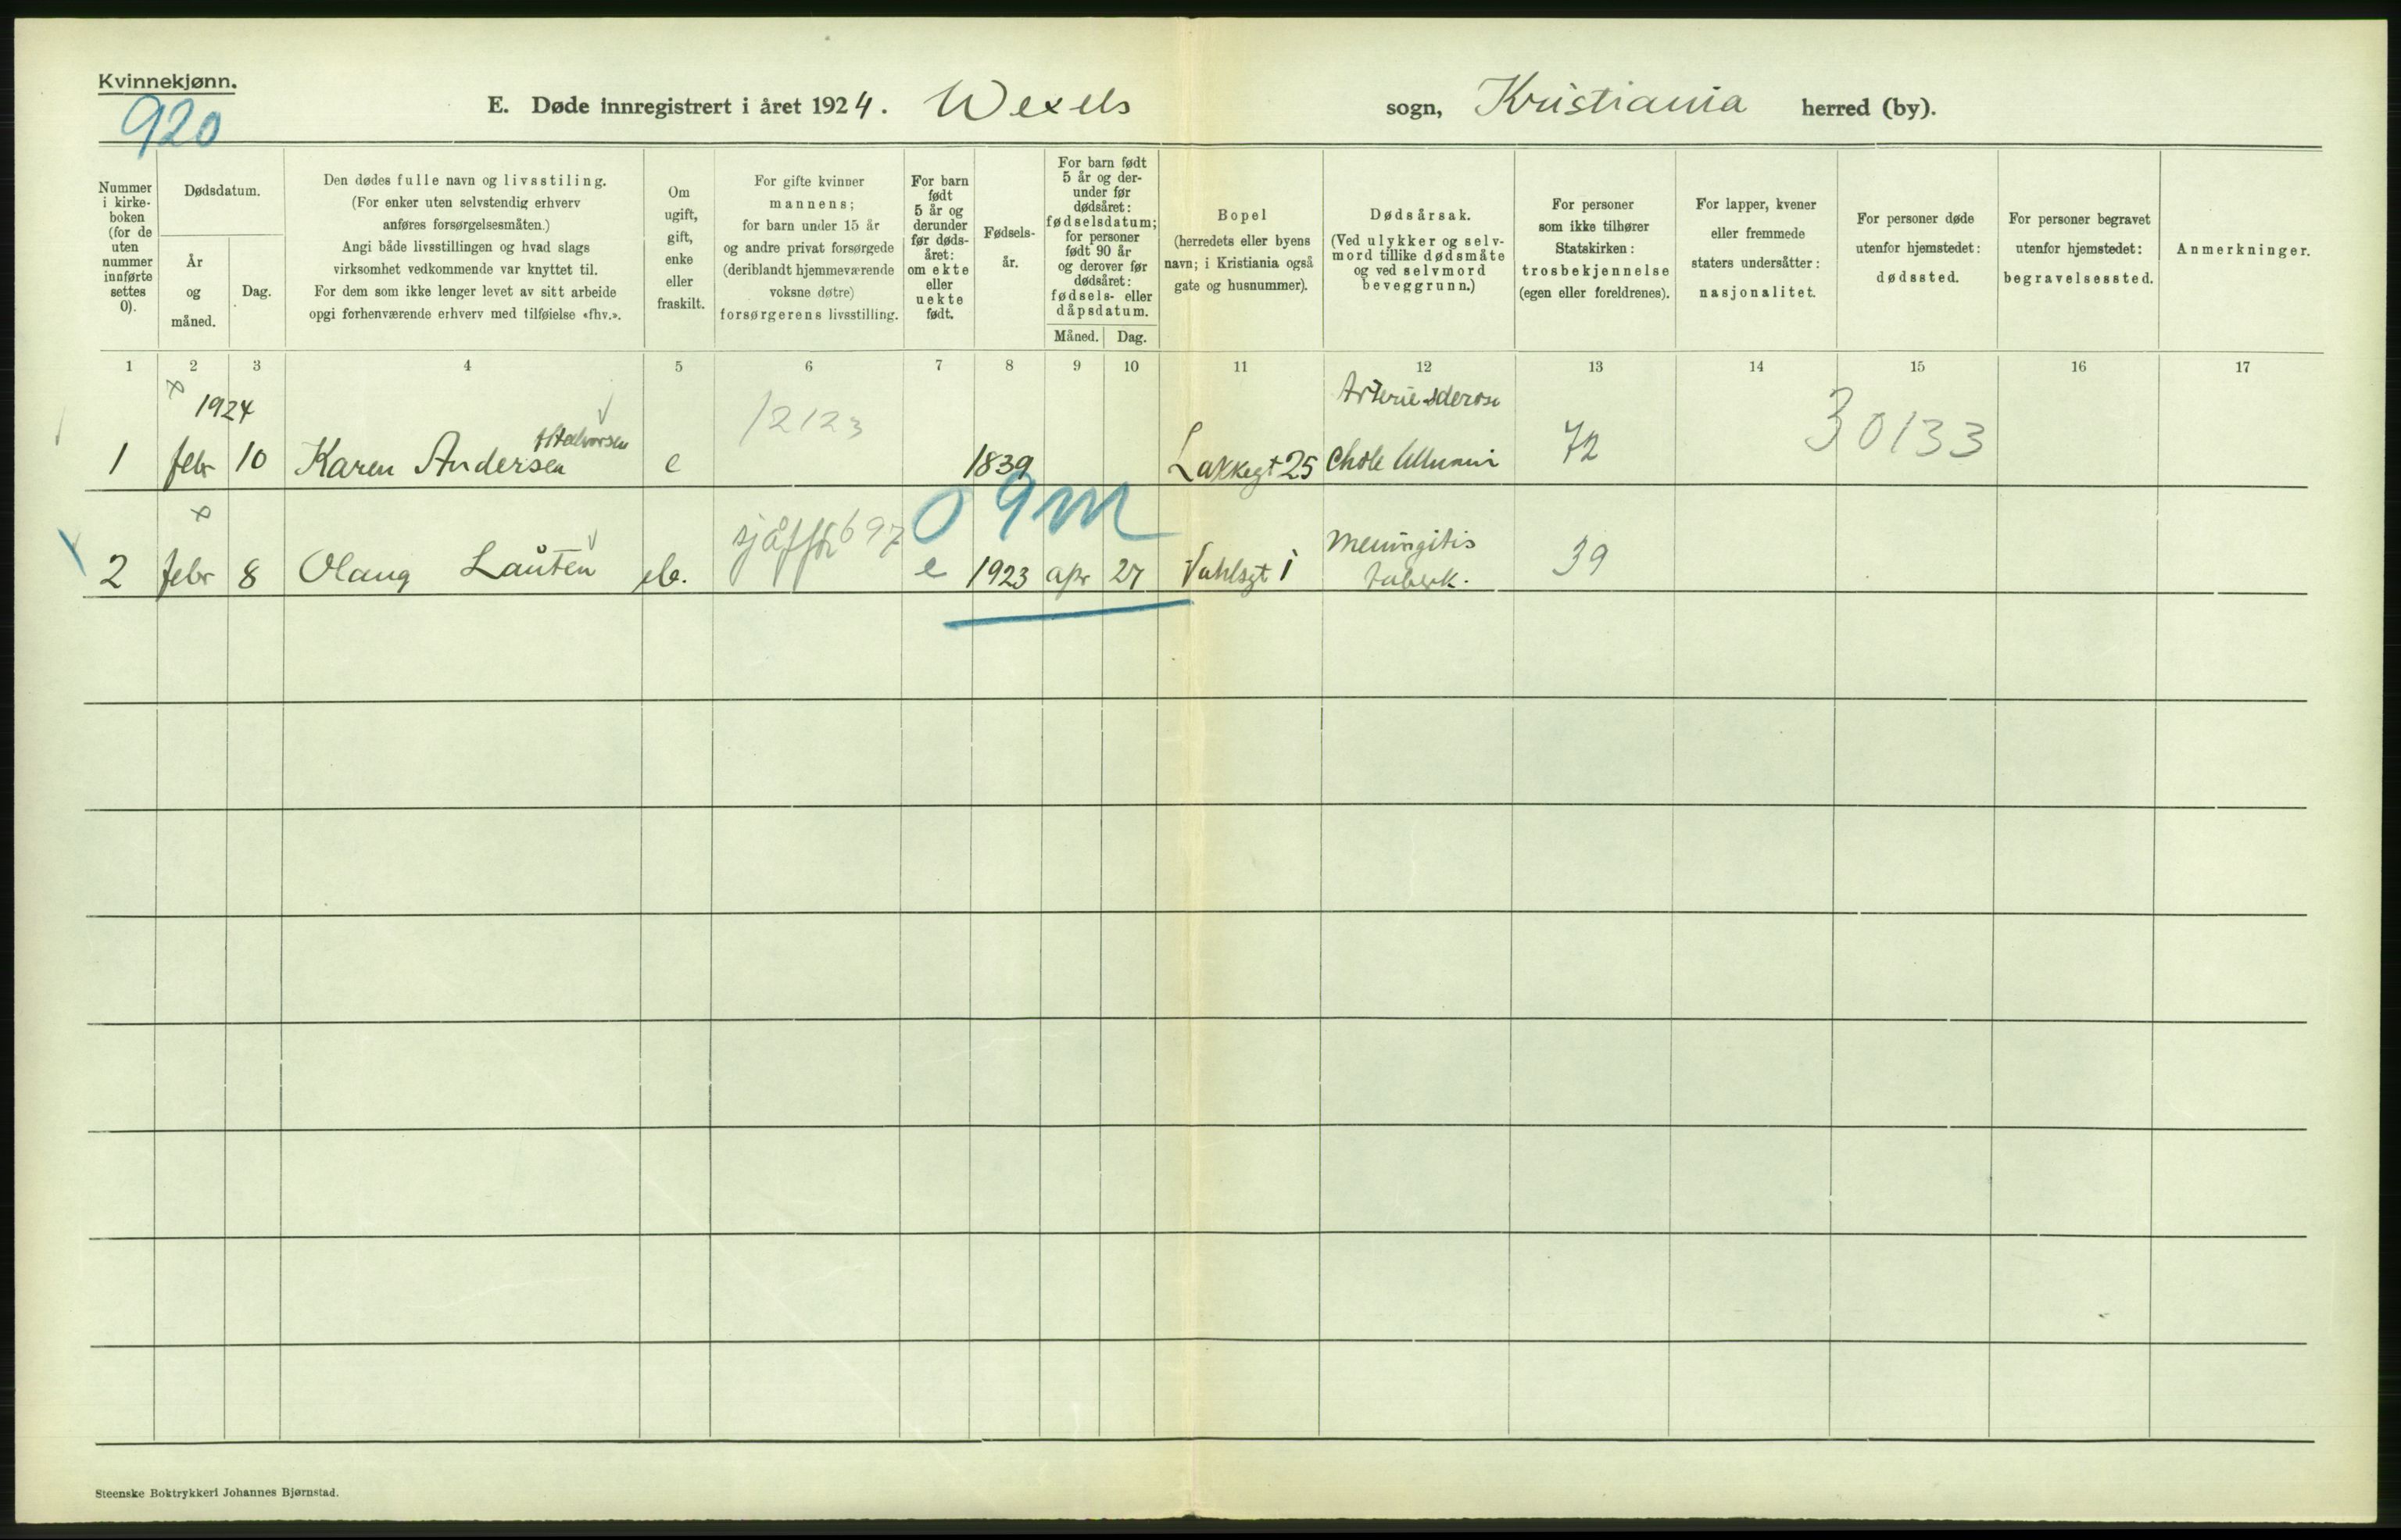 Kvinnekjønn.
920
E. Døde innregistrert i året 1924. Wexels sogn, Kristiania herred (by).
Nummer i kirke-boken (for de uten nummer innførte settes 0).
Dødsdatum.
År og måned.
Dag.
Den dødes fulle navn og livsstiling.
(For enker uten selvstendig erhverv
anføres forsørgelsesmåten.)
Angi både livsstillingen og hvad slags
virksomhet vedkommende var knyttet til.
For dem som ikke lenger levet av sitt arbeide
opgi forhenværende erhverv med tilføielse «fhv.».
Om
ugift,
gift,
enke
eller
fraskilt.
For gifte kvinner
mannens;
for barn under 15 år
og andre privat forsørgede
(deriblandt hjemmeværende
voksne døtre)
forsørgerens livsstilling.
For barn
født
5 år og
derunder
før døds-
året:
om ekte
eller
uekte
født.
Fødsels-
år.
For barn født
5 år og der-
under før
dødsåret:
fødselsdatum;
for personer
født 90 år
og derover før
dødsåret:
fødsels- eller
dåpsdatum.
Måned. Dag.
Bopel
(herredets eller byens
navn; i Kristiania også
gate og husnummer).
Dødsårsak.
(Ved ulykker og selv-
mord tillike dødsmåte
og ved selvmord
beveggrunn.)
For personer
som ikke tilhører
Statskirken:
trosbekjennelse
(egen eller foreldrenes).
For lapper, kvener
eller fremmede
staters undersåtter:
nasjonalitet.
For personer døde
utenfor hjemstedet:
dødssted.
For personer begravet
utenfor hjemstedet:
begravelsessted.
Anmerkninger.
1 2 3 4 5 6 7 8 9 10 11 12 13 14 15 16 17
x 1924
12123
Arterie sclerose
30133
1 febr 10 Karen Andersen f Halvorsen e 1839 Lakkegt 25 72
x
0 9 m
697
Meningitis
2 febr 8 Olaug Lauten e 1923 apr 27 Vahlsgt 1 tuberk. 39
Steenske Boktrykkeri Johannes Bjørnstad.